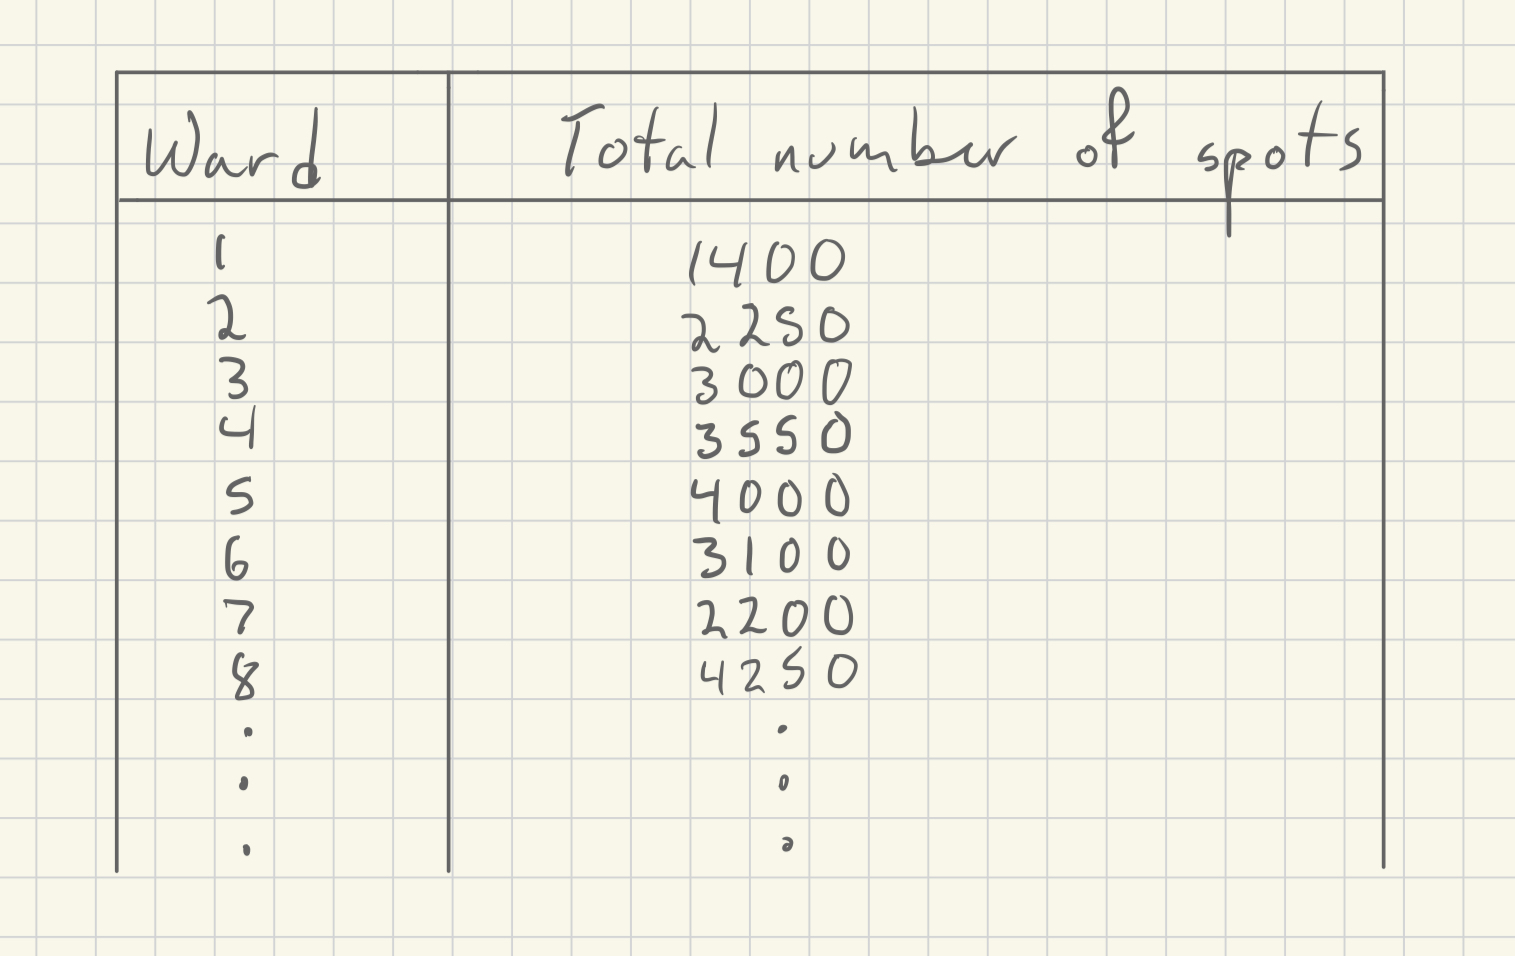 Ward Total number of spots
1 1400
2 2250
3 3000
4 3550
5 4000
6 3100
7 2200
8 4250
. .
. .
. .